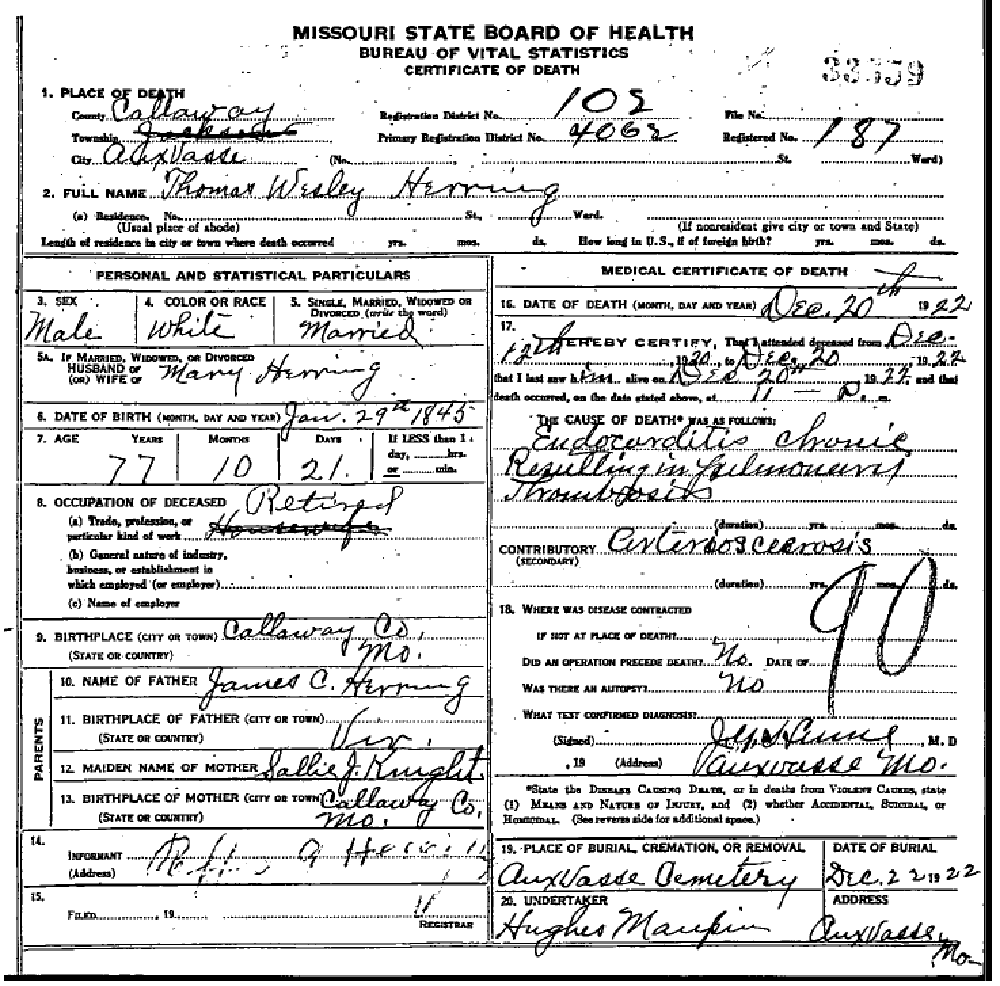 MISSOURI STATE BOARD OF HEALTH
BUREAU OF VITAL STATISTICS
CERTIFICATE OF DEATH
33559
1. PLACE OF DEATH
County Callaway Registration District No. 102 File No.
Township Jackson Primary Registration District No. 4062 Registered No. 187
City AuxVasse (No. St. Ward)
2. FULL NAME Thomas Wesley Herring
(a) Residence. No. St., Ward.
(Usual place of abode) (If nonresident give city or town and State)
Length of residence in city or town where death occurred yrs. mos. ds. How long in U.S., if of foreign birth? yrs. mos. ds.
PERSONAL AND STATISTICAL PARTICULARS
3. SEX 4. COLOR OR RACE 5. SINGLE, MARRIED, WIDOWED OR DIVORCED (write the word)
Male White Married
5A. IF MARRIED, WIDOWED, OR DIVORCED
HUSBAND OF
(OR) WIFE OF Mary Herring
6. DATE OF BIRTH (MONTH, DAY AND YEAR) Jan. 29th 1845
7. AGE YEARS MONTHS DAYS If LESS than 1 day, hrs. or min.
77 10 21.
8. OCCUPATION OF DECEASED Retired
(a) Trade, profession, or
particular kind of work Housewife
(b) General nature of industry,
business, or establishment in
which employed (or employer)
(c) Name of employer
9. BIRTHPLACE (CITY OR TOWN) Callaway Co.
(STATE OR COUNTRY) Mo.
PARENTS
10. NAME OF FATHER James C. Herring
11. BIRTHPLACE OF FATHER (CITY OR TOWN)
(STATE OR COUNTRY) Vir.
12. MAIDEN NAME OF MOTHER Sallie J. Knight.
13. BIRTHPLACE OF MOTHER (CITY OR TOWN) Callaway Co,
(STATE OR COUNTRY) Mo.
14.
INFORMANT
(Address)
15.
FILED , 19
REGISTRAR
MEDICAL CERTIFICATE OF DEATH
16. DATE OF DEATH (MONTH, DAY AND YEAR) Dec. 20th 1922
17.
I HEREBY CERTIFY, That I attended deceased from Dec.
12th, 1920, to Dec. 20, 1922
that I last saw him alive on Dec 20th, 1922, and that
death occurred, on the date stated above, at 11 — P. m.
THE CAUSE OF DEATH* WAS AS FOLLOWS:
Endocarditis chronic
Resulting in Pulmonary
Thrombosis
(duration) yrs. mos. ds.
CONTRIBUTORY Arteriosclerosis
(SECONDARY)
(duration) yrs. mos. ds.
90
18. WHERE WAS DISEASE CONTRACTED
IF NOT AT PLACE OF DEATH?
DID AN OPERATION PRECEDE DEATH? No. DATE OF
WAS THERE AN AUTOPSY? No
WHAT TEST CONFIRMED DIAGNOSIS?
(Signed) , M. D
, 19 (Address) Auxvasse Mo.
*State the DISEASE CAUSING DEATH, or in deaths from VIOLENT CAUSES, state
(1) MEANS AND NATURE OF INJURY, and (2) whether ACCIDENTAL, SUICIDAL, or
HOMICIDAL. (See reverse side for additional space.)
19. PLACE OF BURIAL, CREMATION, OR REMOVAL DATE OF BURIAL
AuxVasse Cemetery Dec. 22 1922
20. UNDERTAKER ADDRESS
Hughes Maupin AuxVasse, Mo.